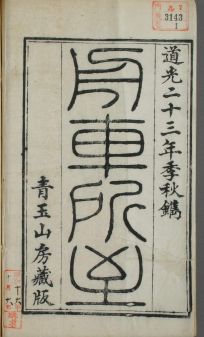 道光二十三年季秋鐫
舟車所至
青玉山房藏版
3143
1